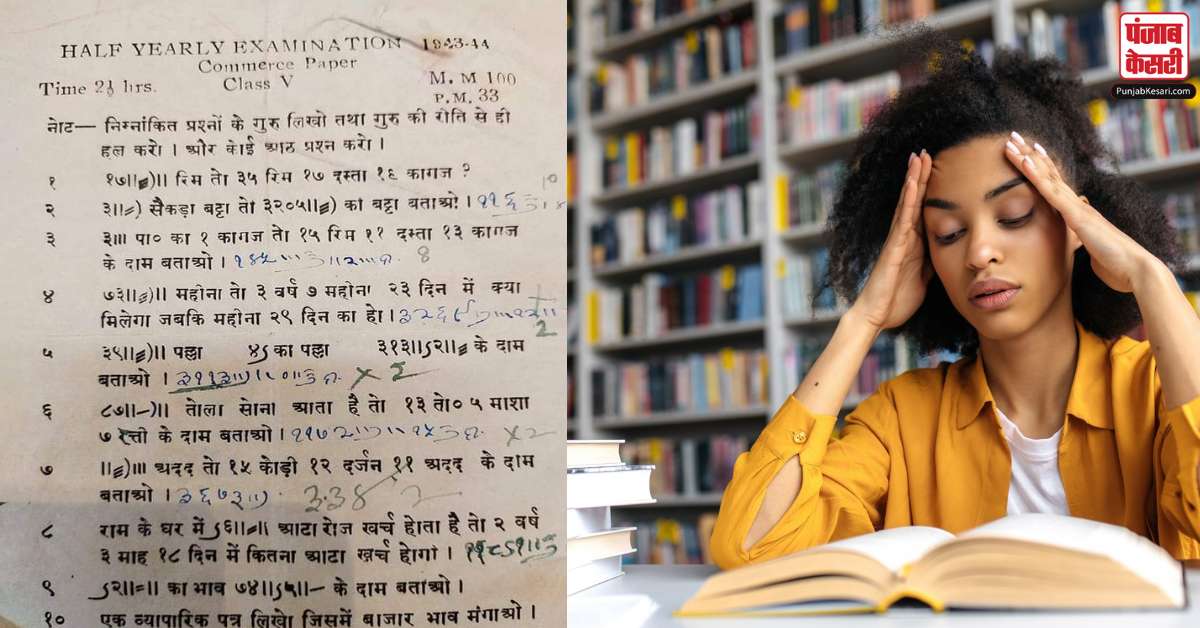 HALF YEARLY EXAMINATION 1943-44
Commerce Paper
Time 2½ hrs. Class V M. M 100
P. M. 33
नोट— निम्नांकित प्रश्नों के गुरु लिखो तथा गुरु की रीति से ही
हल करो । और कोई आठ प्रश्न करो ।
१ १७॥≡)॥ रिम तो ३५ रिम १७ दस्ता १६ कागज ?
२ ३॥=) सैकड़ा बट्टा तो ३२०५॥≡) का बट्टा बताओ ।
३ ३॥। पा० का १ कागज तो १५ रिम ११ दस्ता १३ कागज
के दाम बताओ । 8
४ ७३॥=)॥ महीना तो ३ वर्ष ७ महीना २३ दिन में क्या
मिलेगा जबकि महीना २९ दिन का हो । 2
५ ३९॥≡)॥ पल्ला ४ऽ का पल्ला ३१३॥ऽ२॥≡ के दाम
बताओ । × 2
६ ८७॥-)॥ तोला सोना आता है तो १३ तो० ५ माशा
७ रत्ती के दाम बताओ । ×2
७ ॥≡)॥। अदद तो १५ कोड़ी १२ दर्जन ११ अदद के दाम
बताओ ।
८ राम के घर में ऽ६॥=॥ आटा रोज खर्च होता है तो २ वर्ष
३ माह १८ दिन में कितना आटा खर्च होगा ।
९ ऽ२॥=॥ का भाव ७४॥ऽ५॥- के दाम बताओ ।
१० एक व्यापारिक पत्र लिखो जिसमें बाजार भाव मंगाओ ।
पंजाब
केसरी
PunjabKesari.com